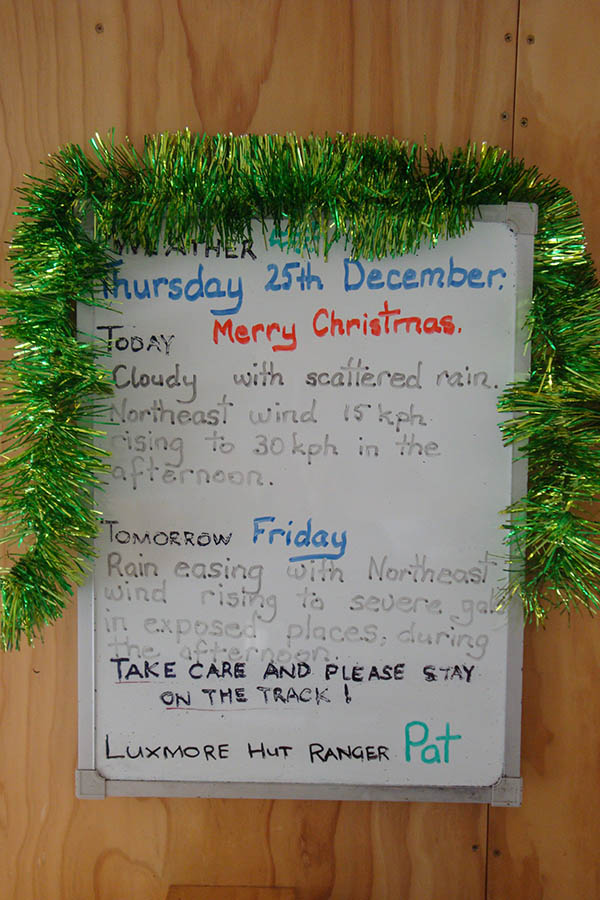 WEATHER
Thursday 25th December.
Merry Christmas.
TODAY
Cloudy with scattered rain.
Northeast wind 15 kph
rising to 30 kph in the
afternoon.
TOMORROW Friday
Rain easing with Northeast
wind rising to severe gale
in exposed places, during
the afternoon.
TAKE CARE AND PLEASE STAY
ON THE TRACK!
LUXMORE HUT RANGER Pat